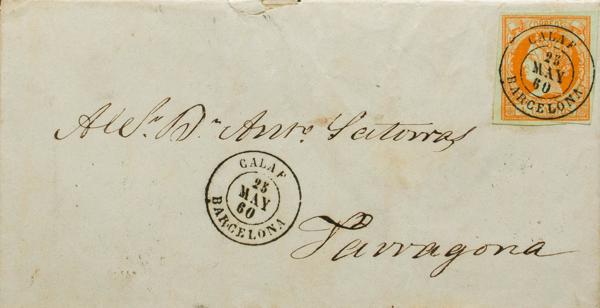 CORREOS
CALAF
25
MAY
60
BARCELONA
Al Sr. Dn. Anto. Satorras
CALAF
25
MAY
60
BARCELONA
Tarragona